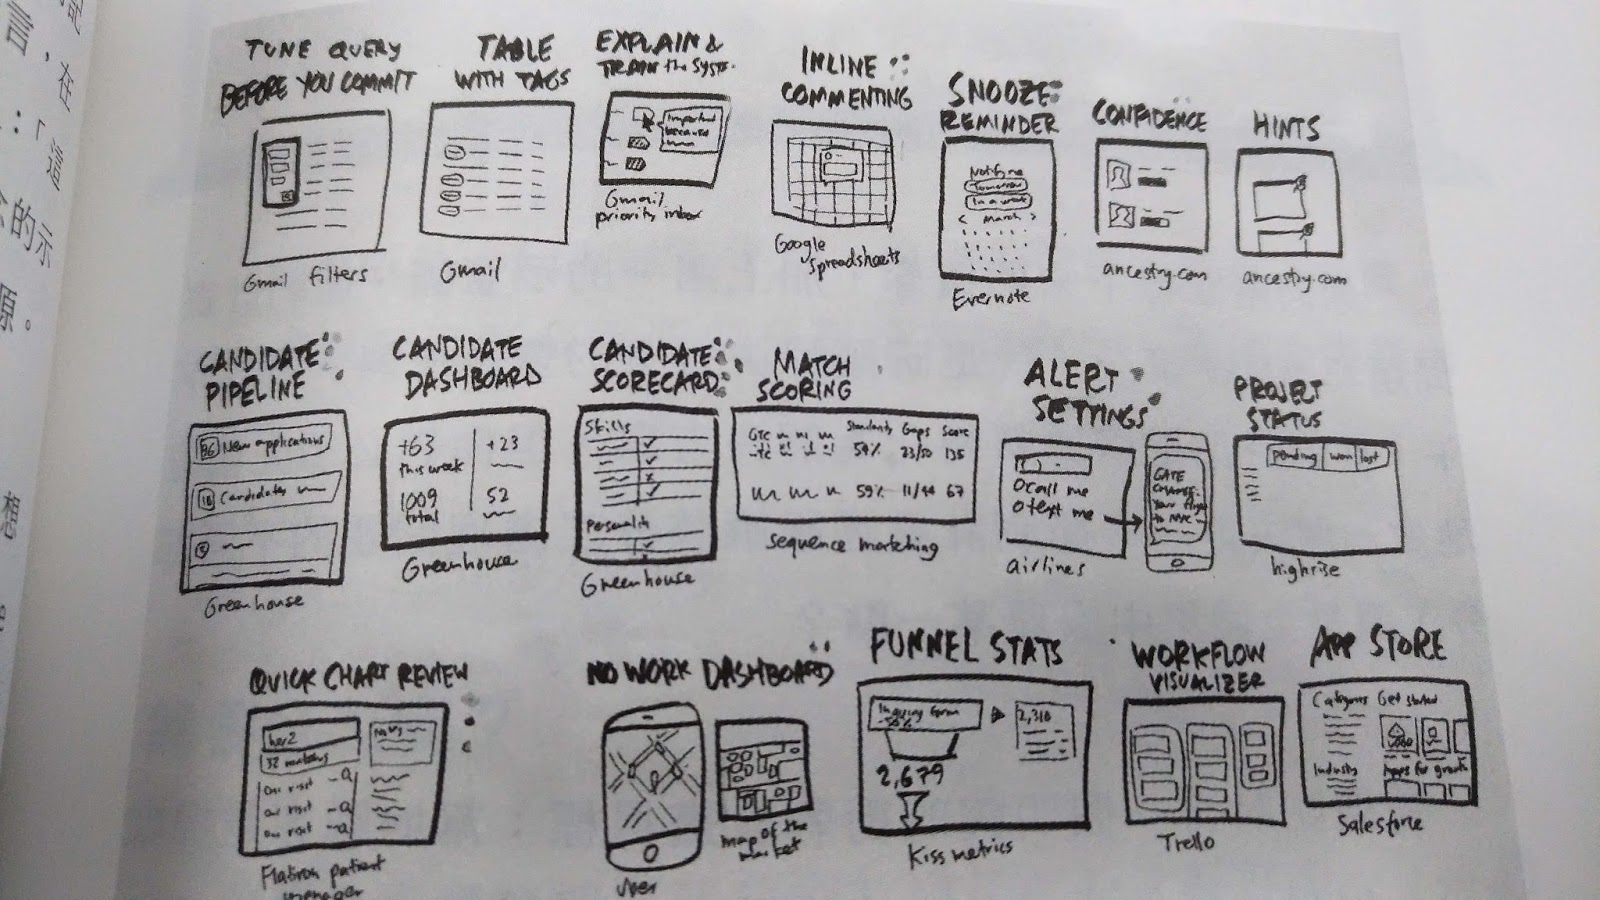 TUNE QUERY
BEFORE YOU COMMIT
Gmail filters
TABLE
WITH TAGS
Gmail
EXPLAIN &
TRAIN the SYSTEM
Important
because
Gmail
priority inbox
INLINE
COMMENTING
Google
Spreadsheets
SNOOZE
REMINDER
Notify me
Tomorrow
In a week
< March >
Evernote
CONFIDENCE
ancestry.com
HINTS
ancestry.com
CANDIDATE
PIPELINE
36 New applications
18 Candidates
Greenhouse
CANDIDATE
DASHBOARD
+63
this week
+23
1009
total
52
Greenhouse
CANDIDATE
SCORECARD
Skills
Personality
Greenhouse
MATCH
SCORING
Gaps Score
59% 23/50 135
59% 11/44 67
sequence matching
ALERT
SETTINGS
O call me
O text me
GATE
CHANGE:
Your flight
to NYC
airlines
PROJECT
STATUS
pending won lost
highrise
QUICK CHART REVIEW
her2
Flatiron patient
manager
NO WORK DASHBOARD
Uber
map of the
market
FUNNEL STATS
-56%
2,310
2,679
Kiss metrics
WORKFLOW
VISUALIZER
Trello
APP STORE
Categories Get started
Industry Apps for growth
Salesforce
言,在
的示
源。